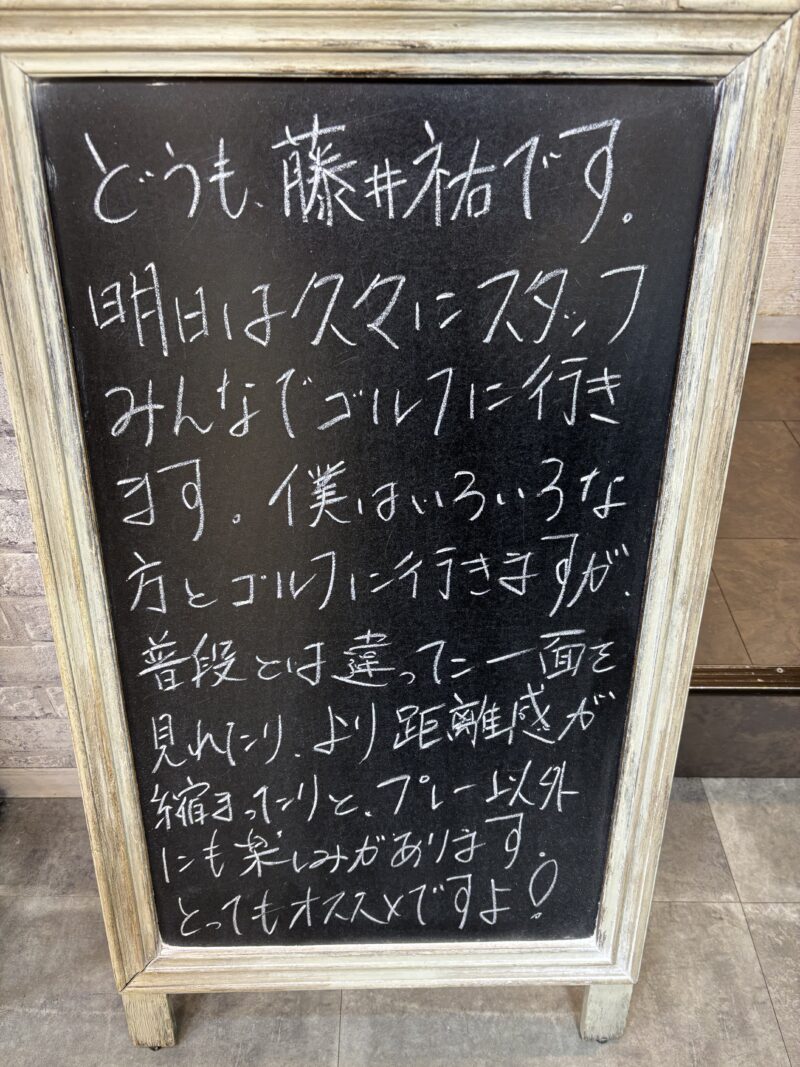 どうも、藤井祐です。
明日は久々にスタッフ
みんなでゴルフに行き
ます。僕はいろいろな
方とゴルフに行きますが、
普段とは違った一面を
見れたり、より距離感が
縮まったりと、プレー以外
にも楽しみがあります。
とってもオススメですよ!